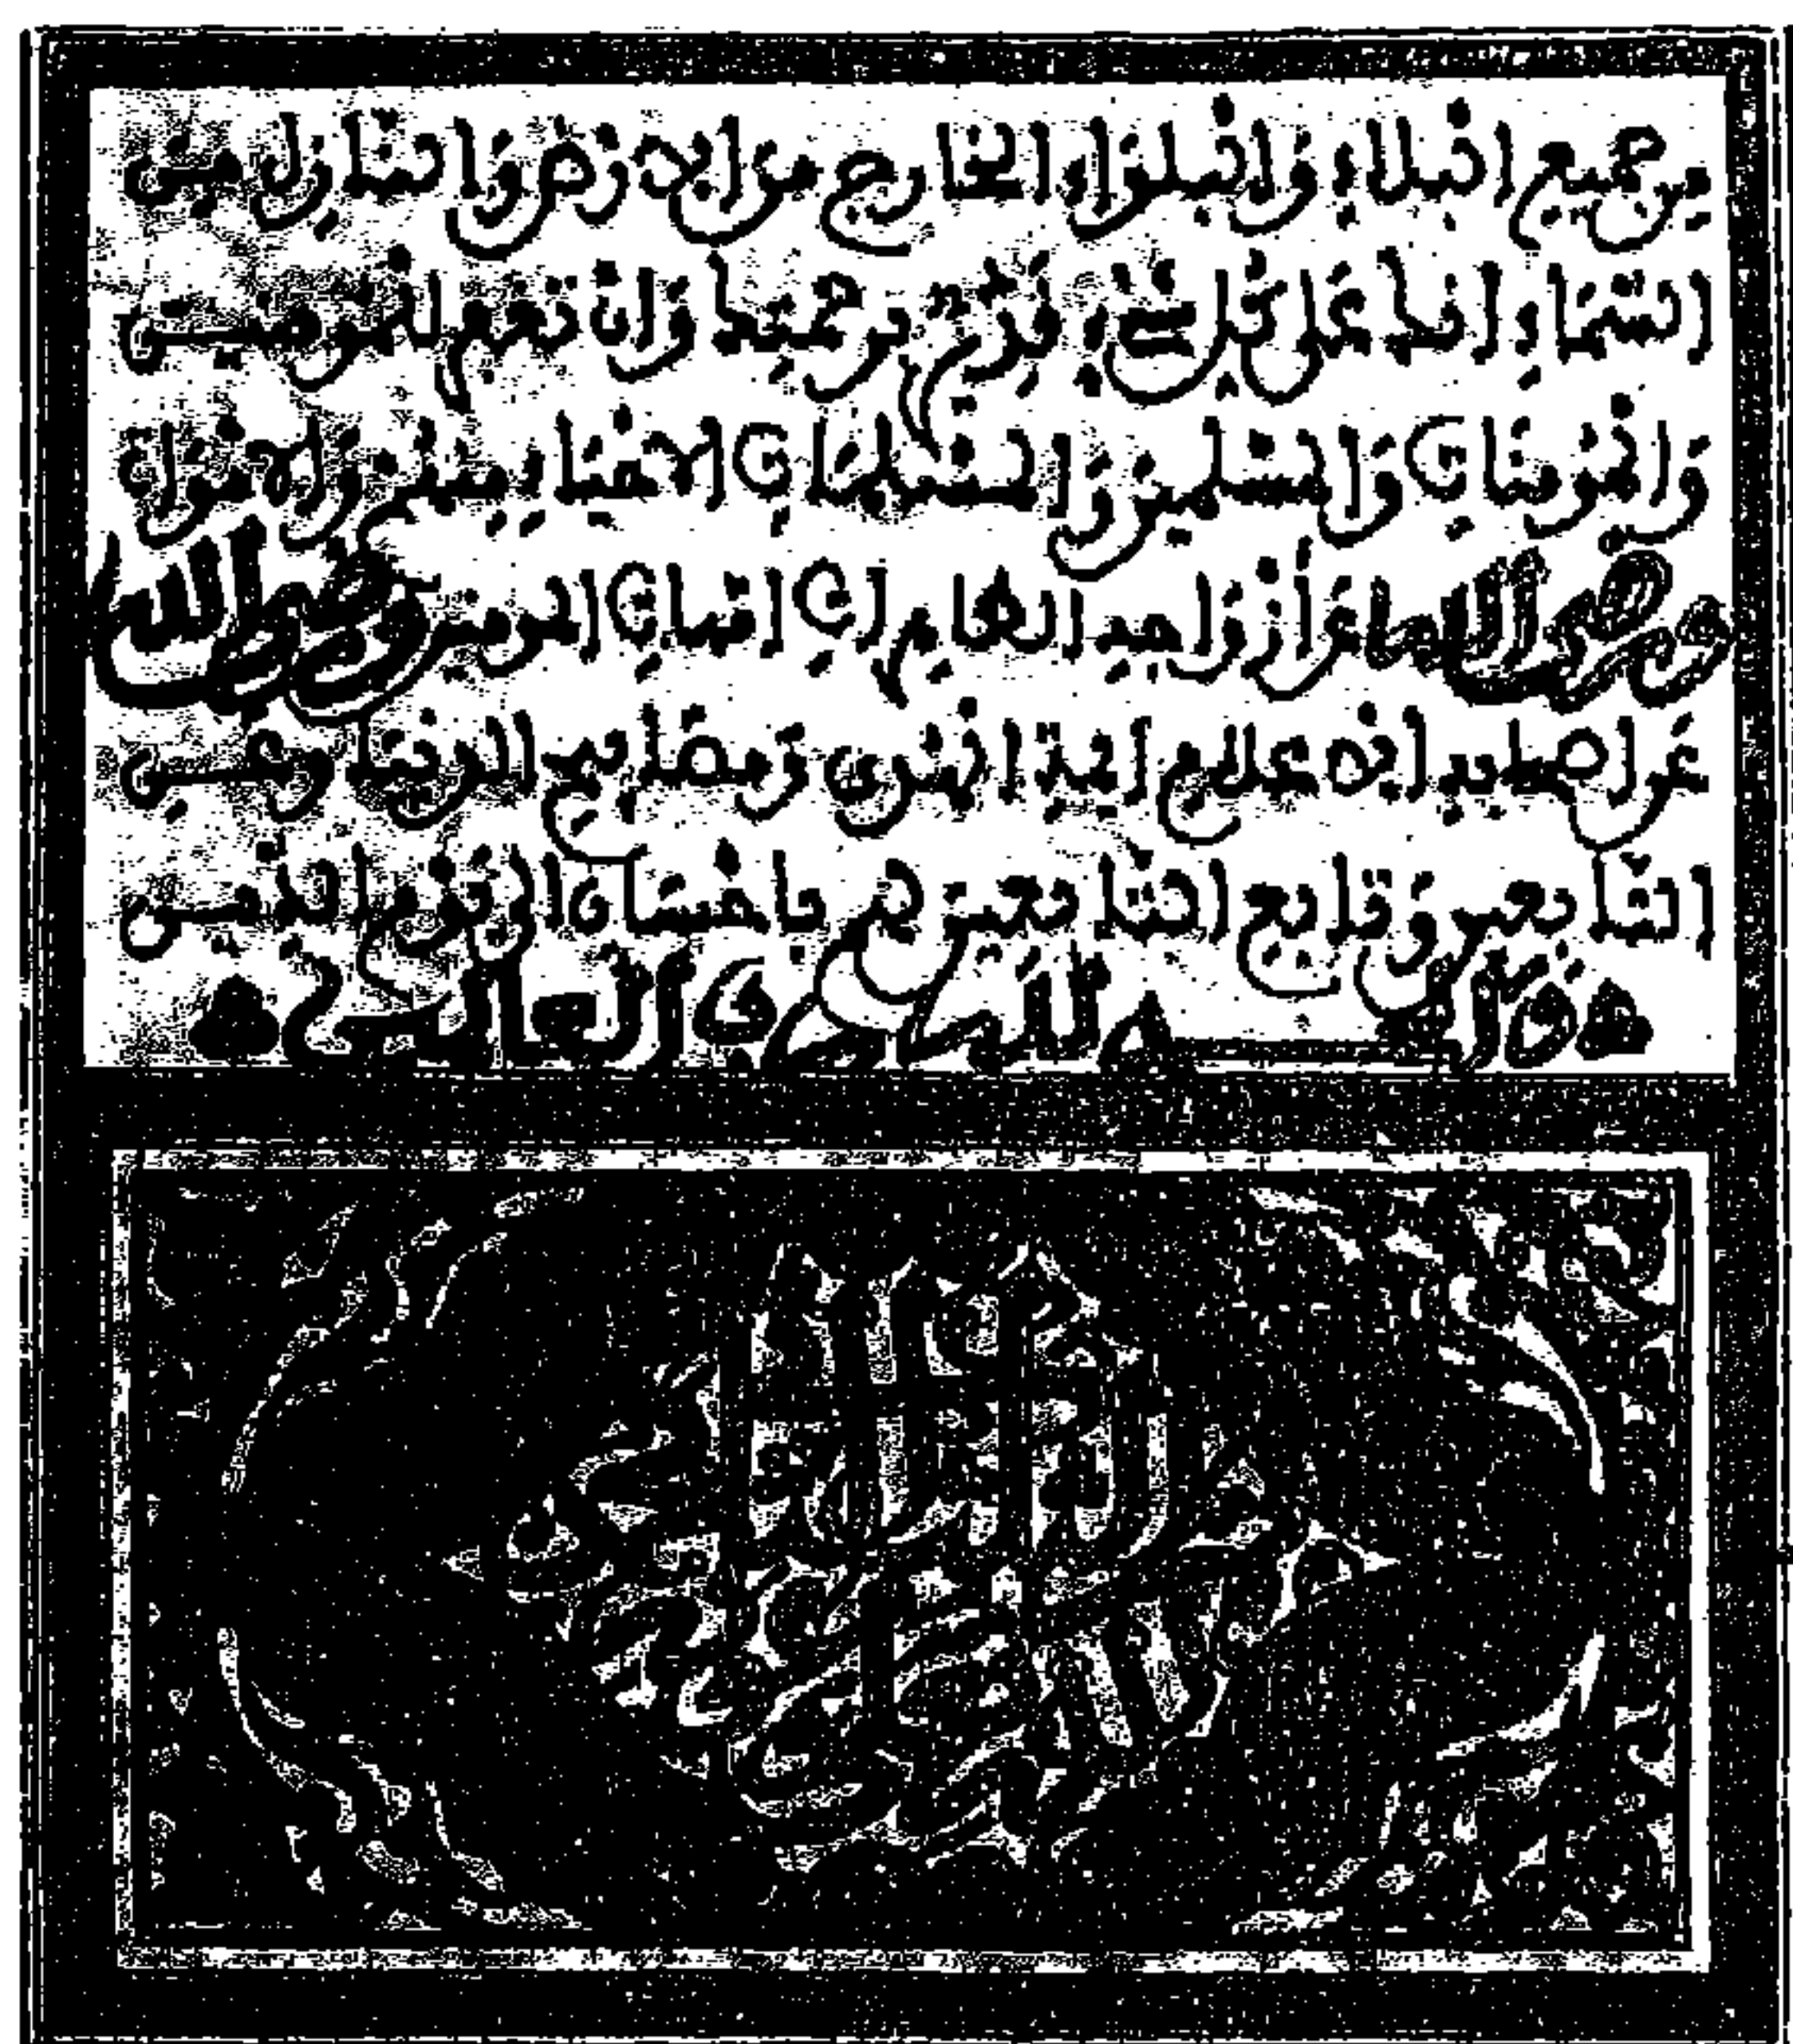 من جميع البلاء والبلواء الخارج من الارض والنازل من
السماء انك على كل شيء قدير برحمتك وان تغفر للمومنين
والمومنات والمسلمين والمسلمات الاحياء منهم والاموات
ورضي الله عن ازواجه الطاهرات امهات المومنين ورضي الله
عن اصحابه الاعلام ايمة الهدى ومصابيح الدنيا وعن
التابعين وتابع التابعين لهم باحسان الى يوم الدين
والحمد لله رب العالمين